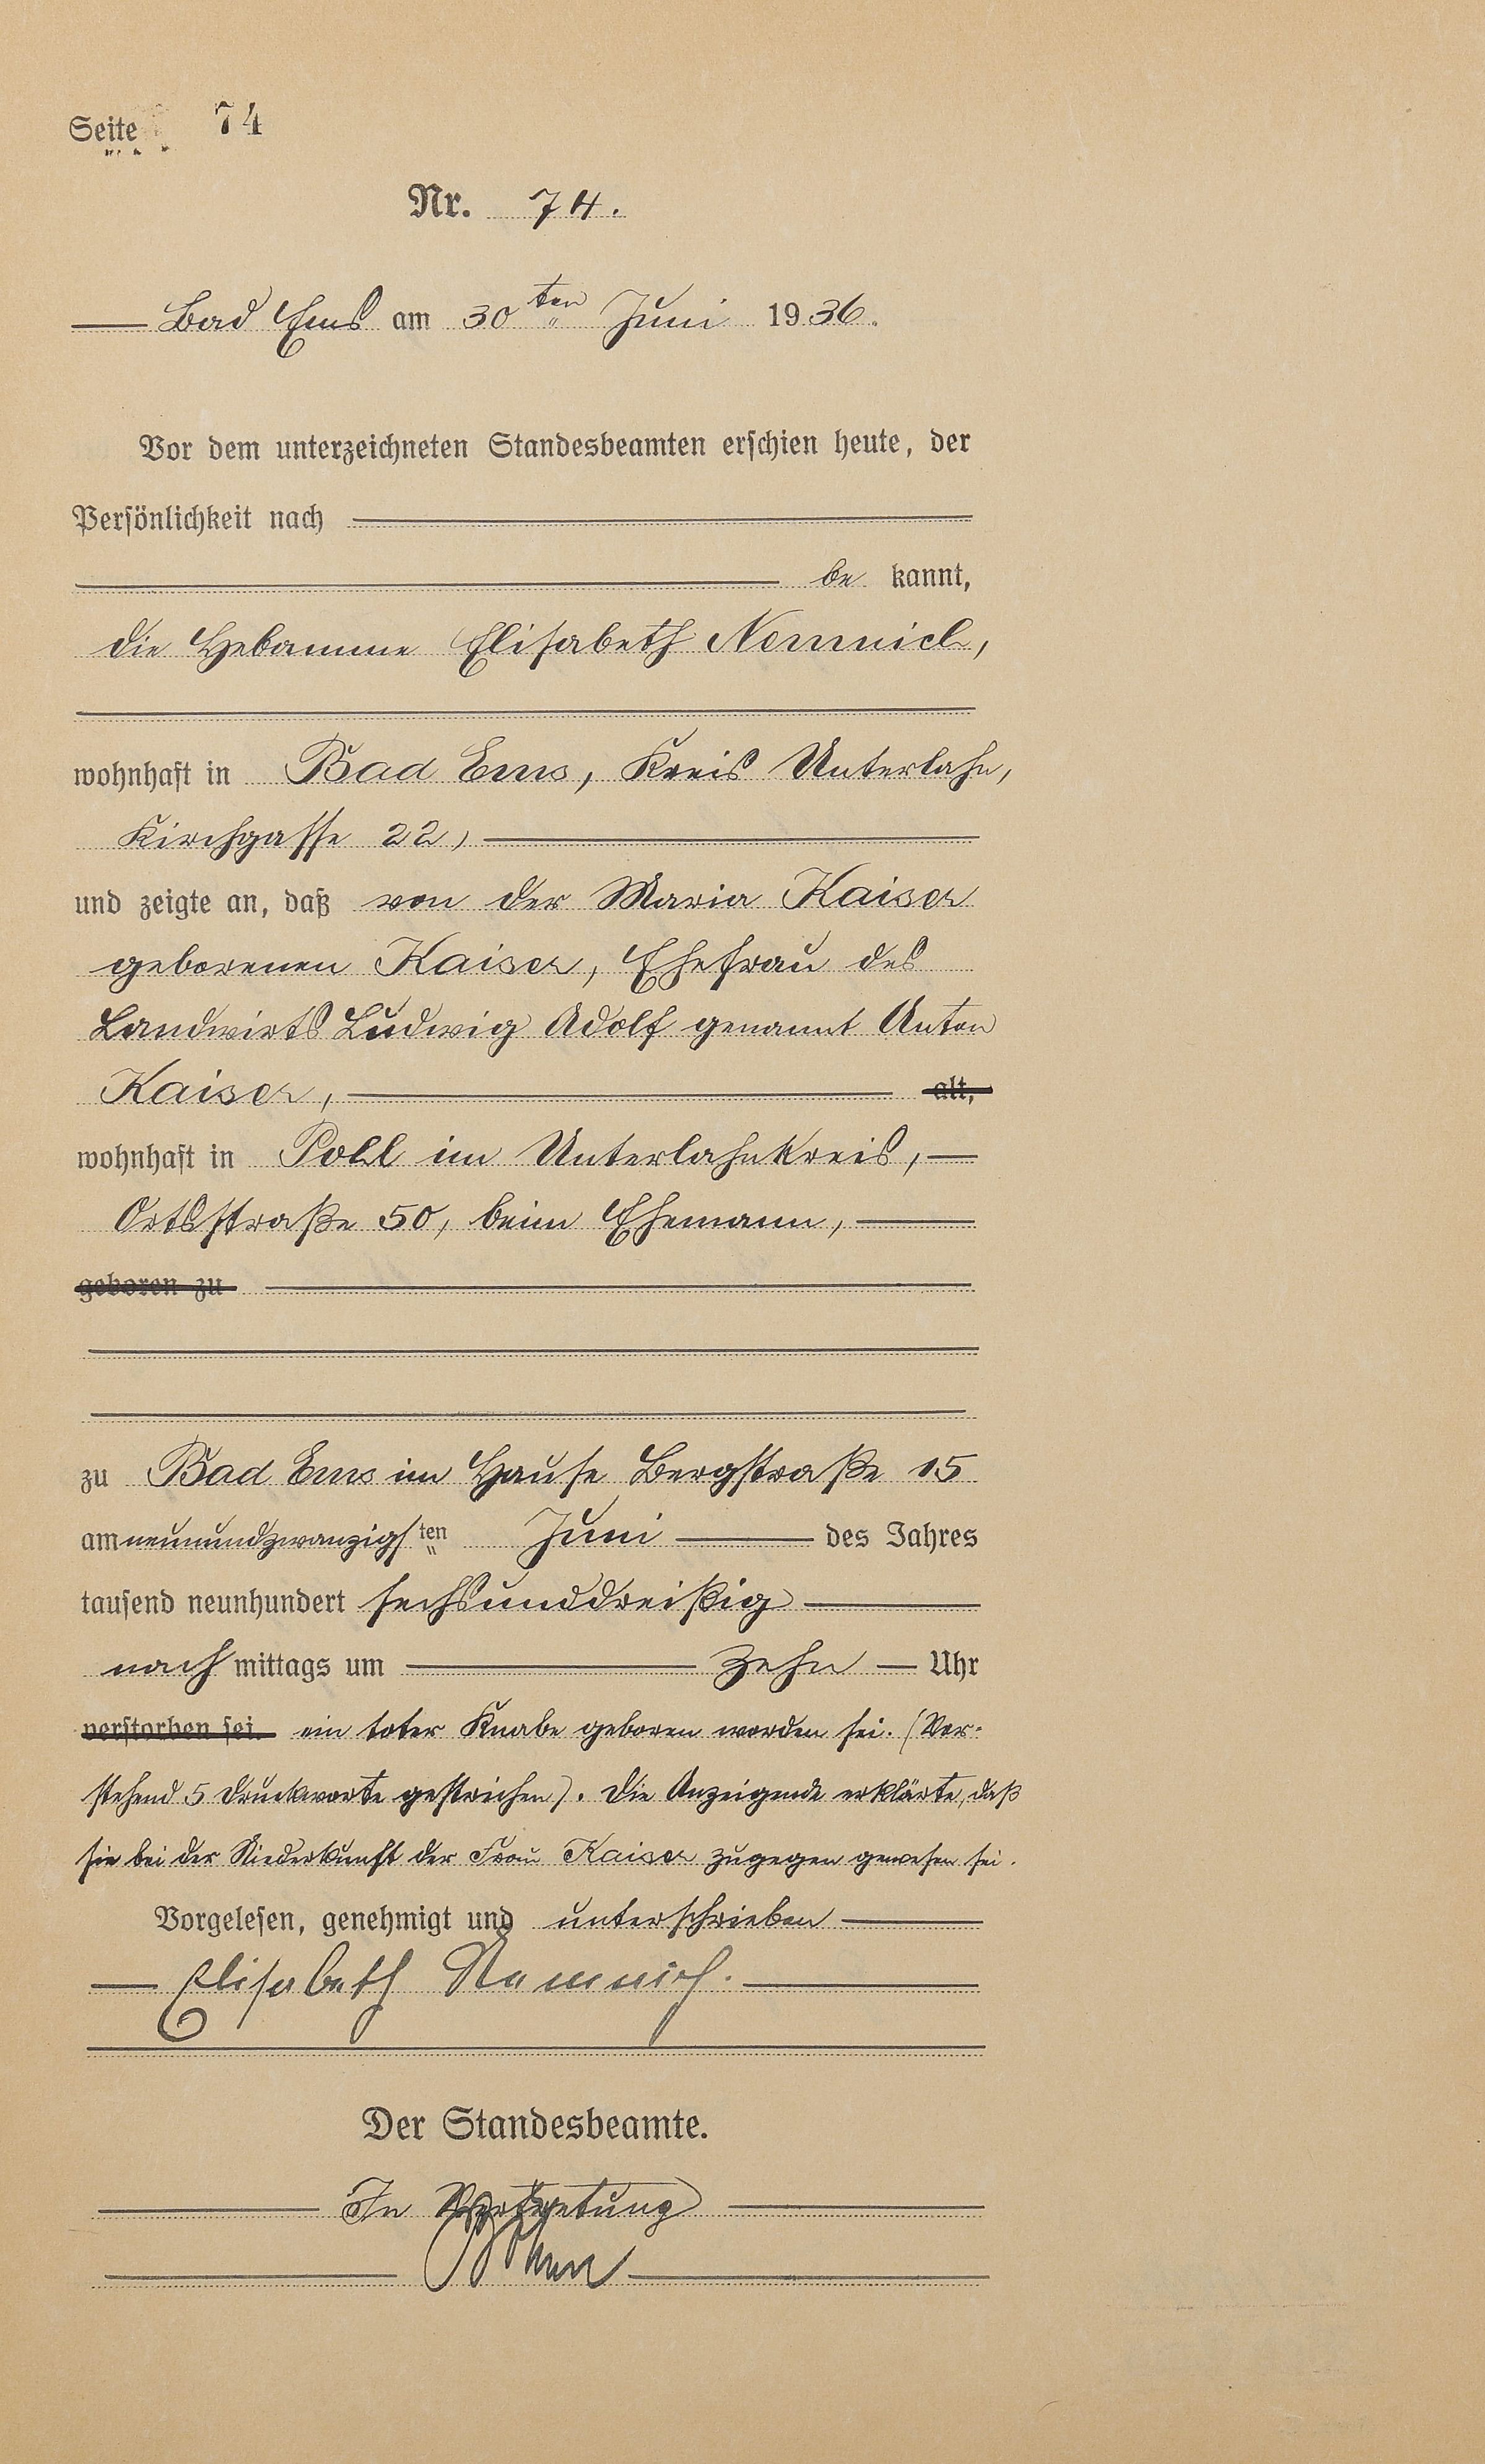 Seite 74
Nr. 74.
Bad Ems am 30ten Juni 1936.
Vor dem unterzeichneten Standesbeamten erschien heute, der
Persönlichkeit nach
be kannt,
die Hebamme Elisabeth Nemnich,
wohnhaft in Bad Ems, Kreis Unterlahn,
Kirchgasse 22,
und zeigte an, daß von der Maria Kaiser
geborenen Kaiser, Ehefrau des
Landwirts Ludwig Adolf genannt Anton
Kaiser, alt,
wohnhaft in Pohl im Unterlahnkreis,
Ortsstraße 50, beim Ehemann,
geboren zu
zu Bad Ems im Hause Bergstraße 15
am neunundzwanzigsten Juni des Jahres
tausend neunhundert sechsunddreißig
nach mittags um zehn Uhr
verstorben sei. ein toter Knabe geboren worden sei. (Vor-
stehend 5 Druckworte gestrichen). Die Anzeigende erklärte, daß
sie bei der Niederkunft der Frau Kaiser zugegen gewesen sei.
Vorgelesen, genehmigt und unterschrieben
Elisabeth Nemnich.
Der Standesbeamte.
In Vertretung